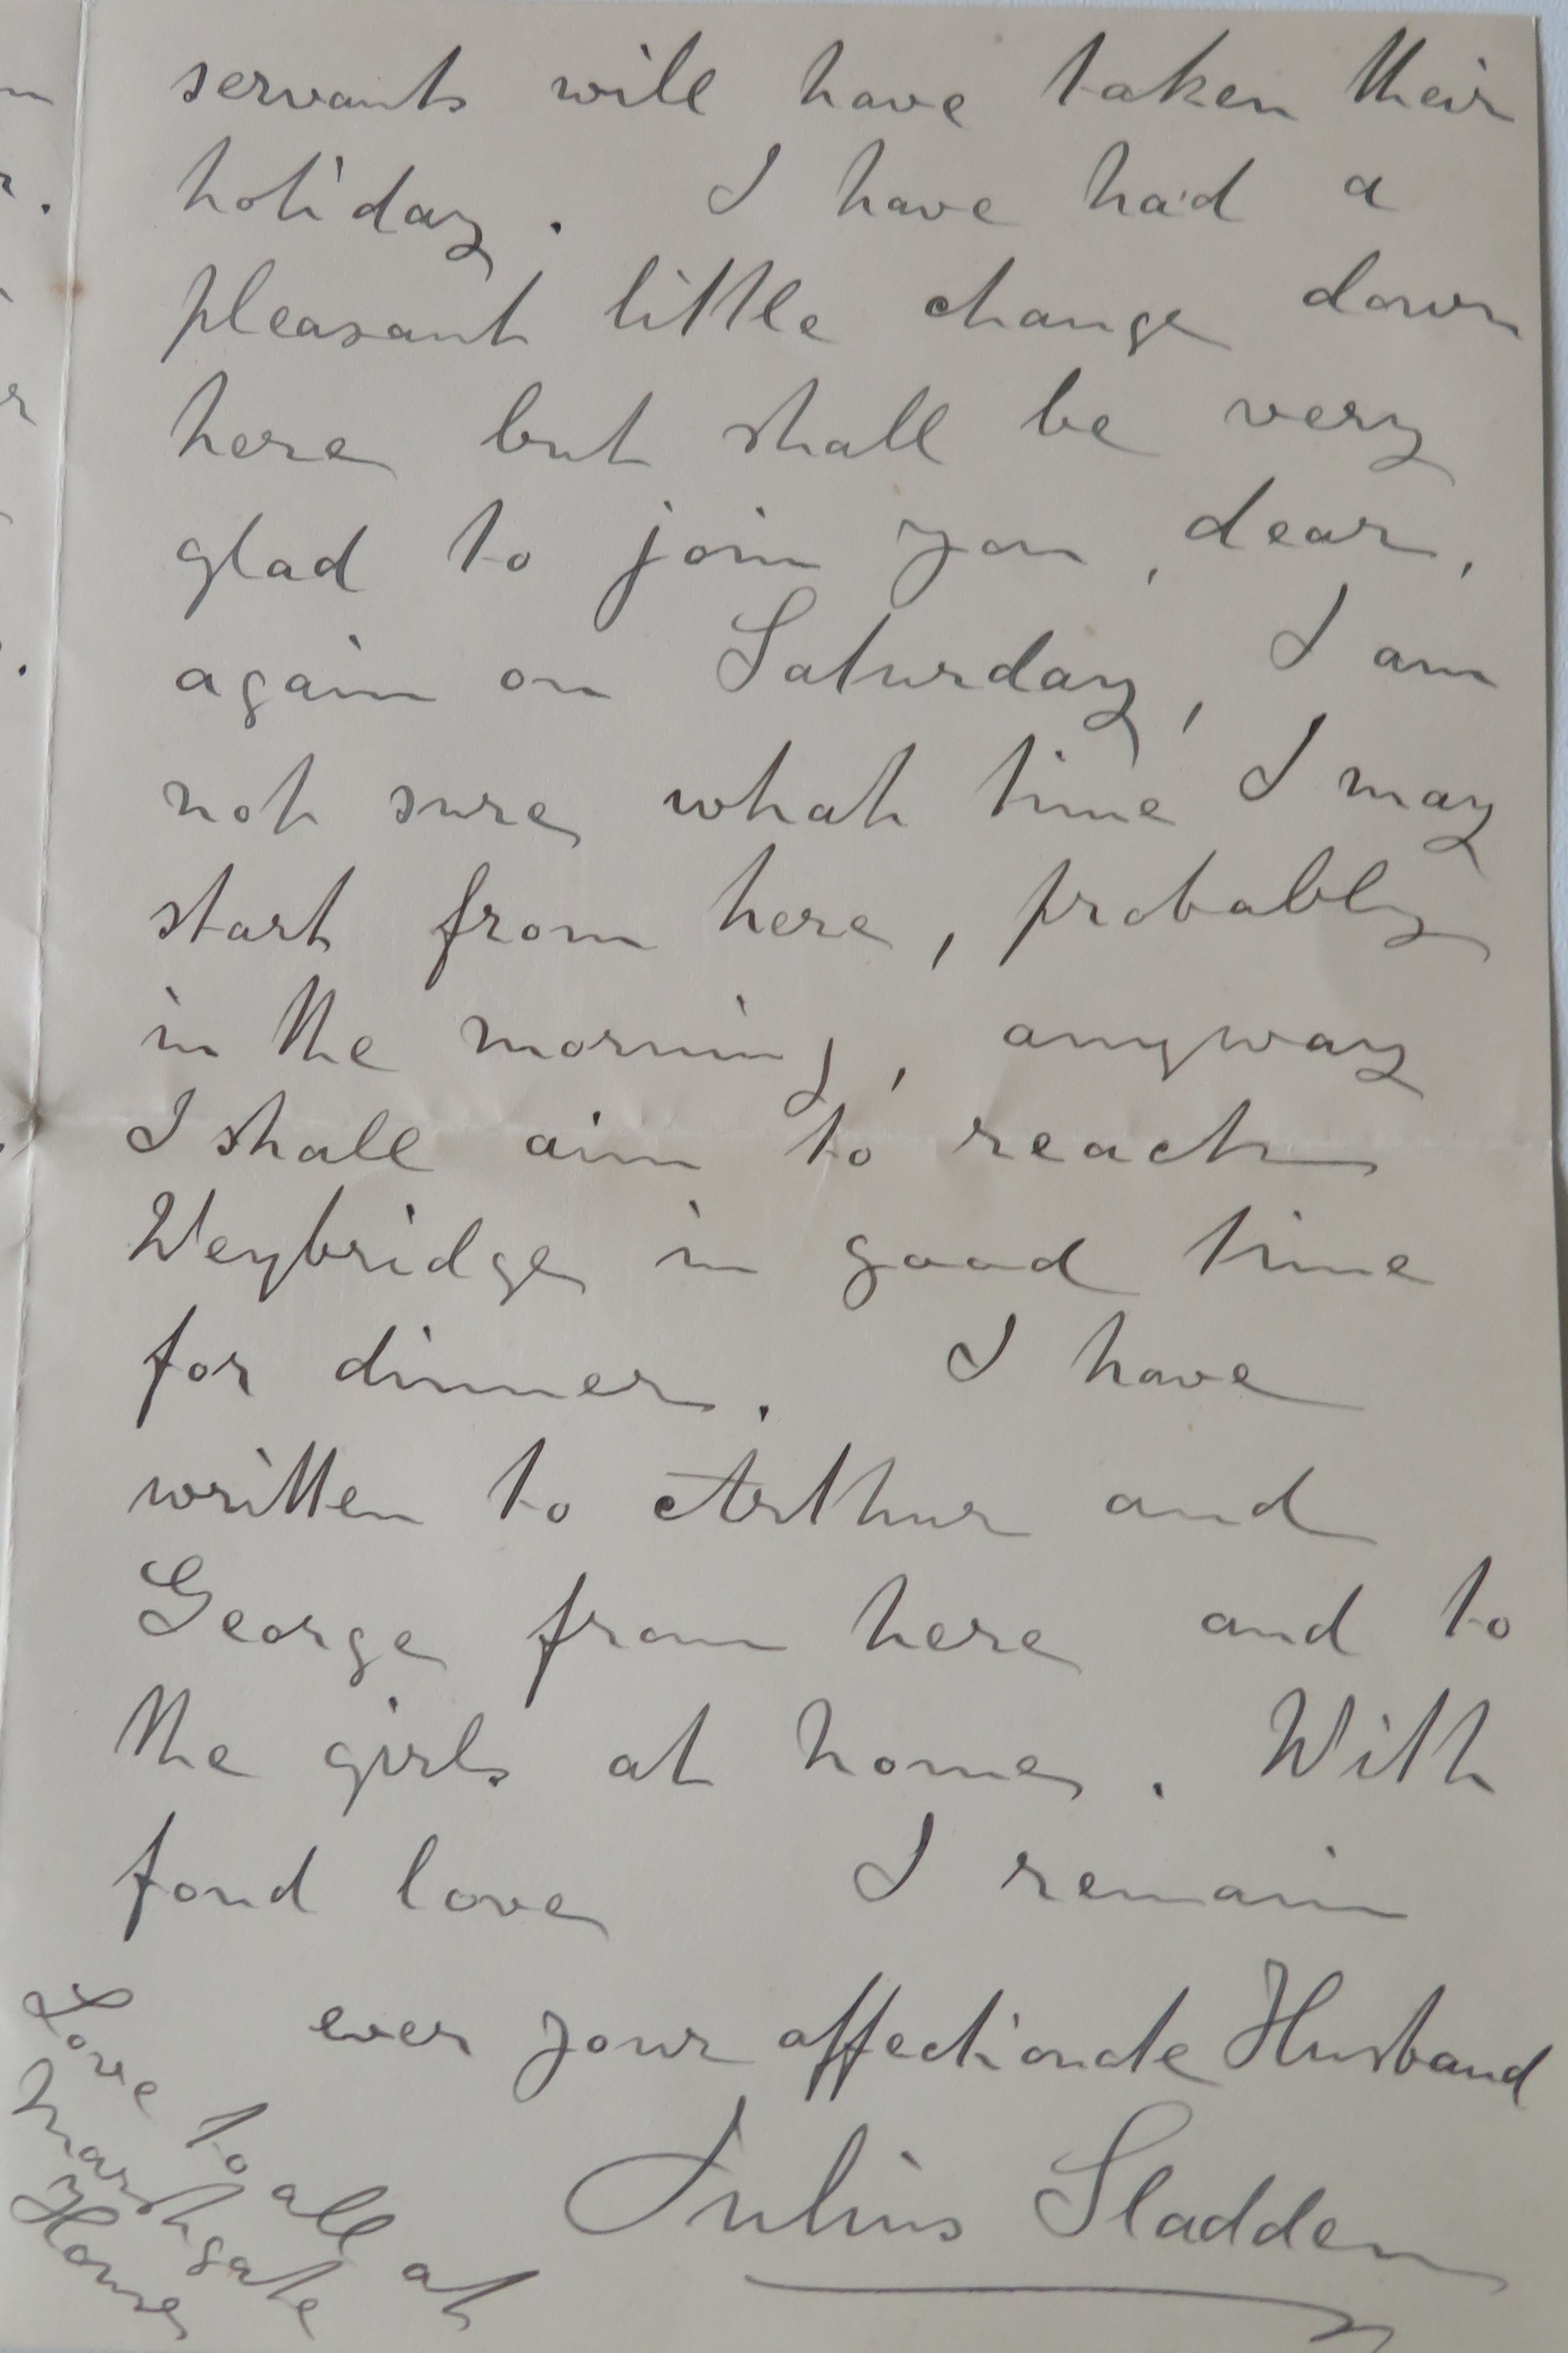 servants will have taken their
holiday. I have had a
pleasant little change down
here but shall be very
glad to join you, dear,
again on Saturday, I am
not sure what time I may
start from here, probably
in the morning, anyway
I shall aim to reach
Weybridge in good time
for dinner. I have
written to Arthur and
George from here and to
the girls at home. With
fond love I remain
ever your affectionate Husband
Julius Sladden
Love to all at
Marshgate
House